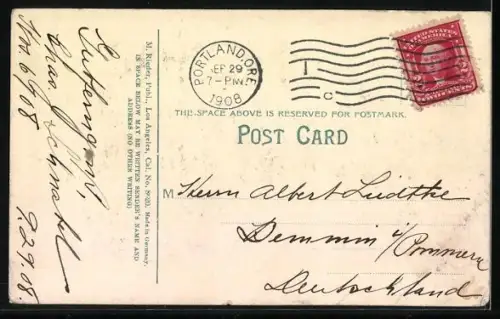 PORTLAND, ORE.
SEP 29
7-PM
1908
T
C
UNITED STATES OF AMERICA
THE SPACE ABOVE IS RESERVED FOR POSTMARK.
POST CARD
M Herrn Albert Lüdtke
Demmin i/Pommern
Deutschland
M. Rieder, Publ., Los Angeles, Cal. No. Made in Germany.
IN SPACE BELOW MAY BE WRITTEN SENDER'S NAME AND
ADDRESS (NO OTHER WRITING)
Chas.
9.29.08.